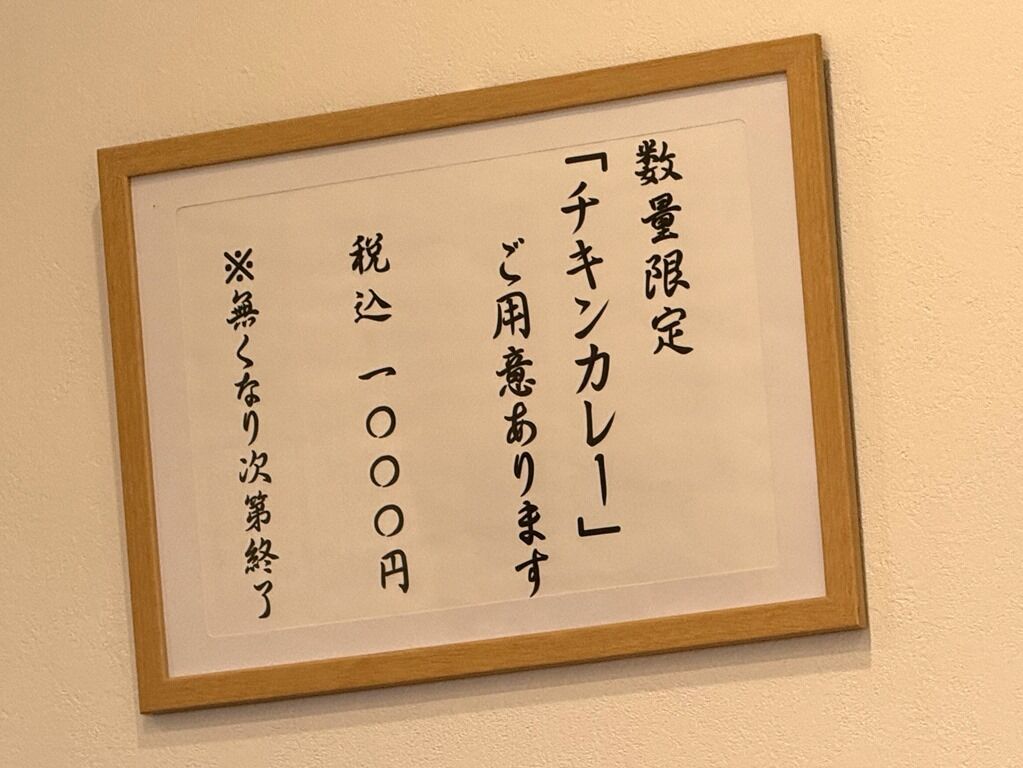 数量限定
「チキンカレー」
ご用意あります
税込 一〇〇〇円
※無くなり次第終了